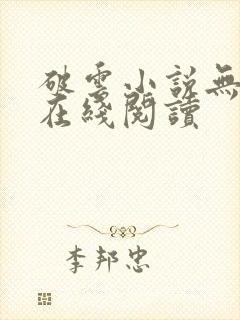 破雲小説無
在綫閱讀
李邦忠